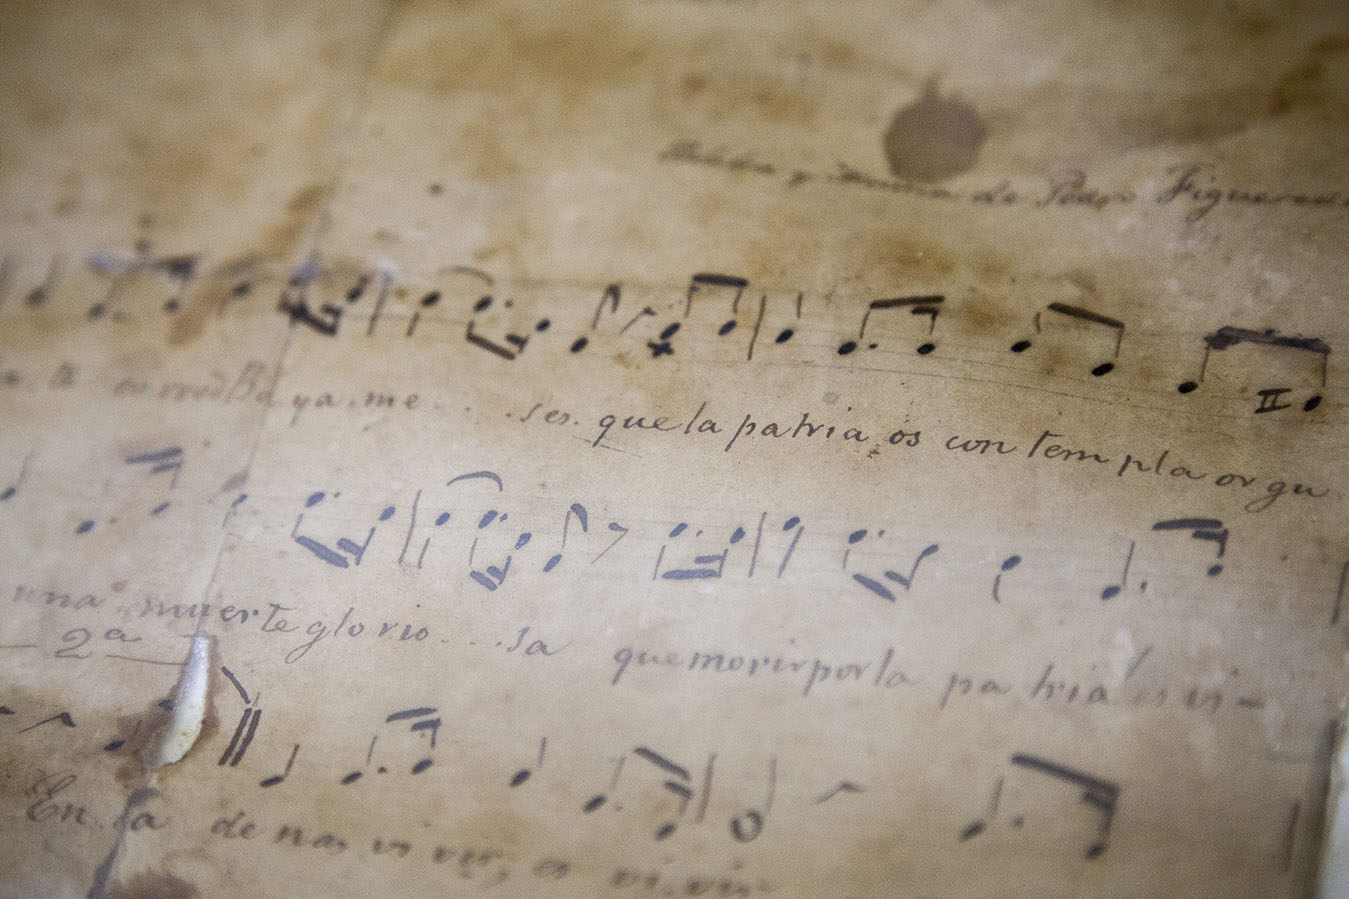 Palabra y Musica de Pedro Figueredo
ya.me - . . .ses. que la patria os con tem pla or gu
una muerte glorio - . . .sa que morir por la pa tria es vi -
2ª
En ca de nas vi vir, es vi.vir